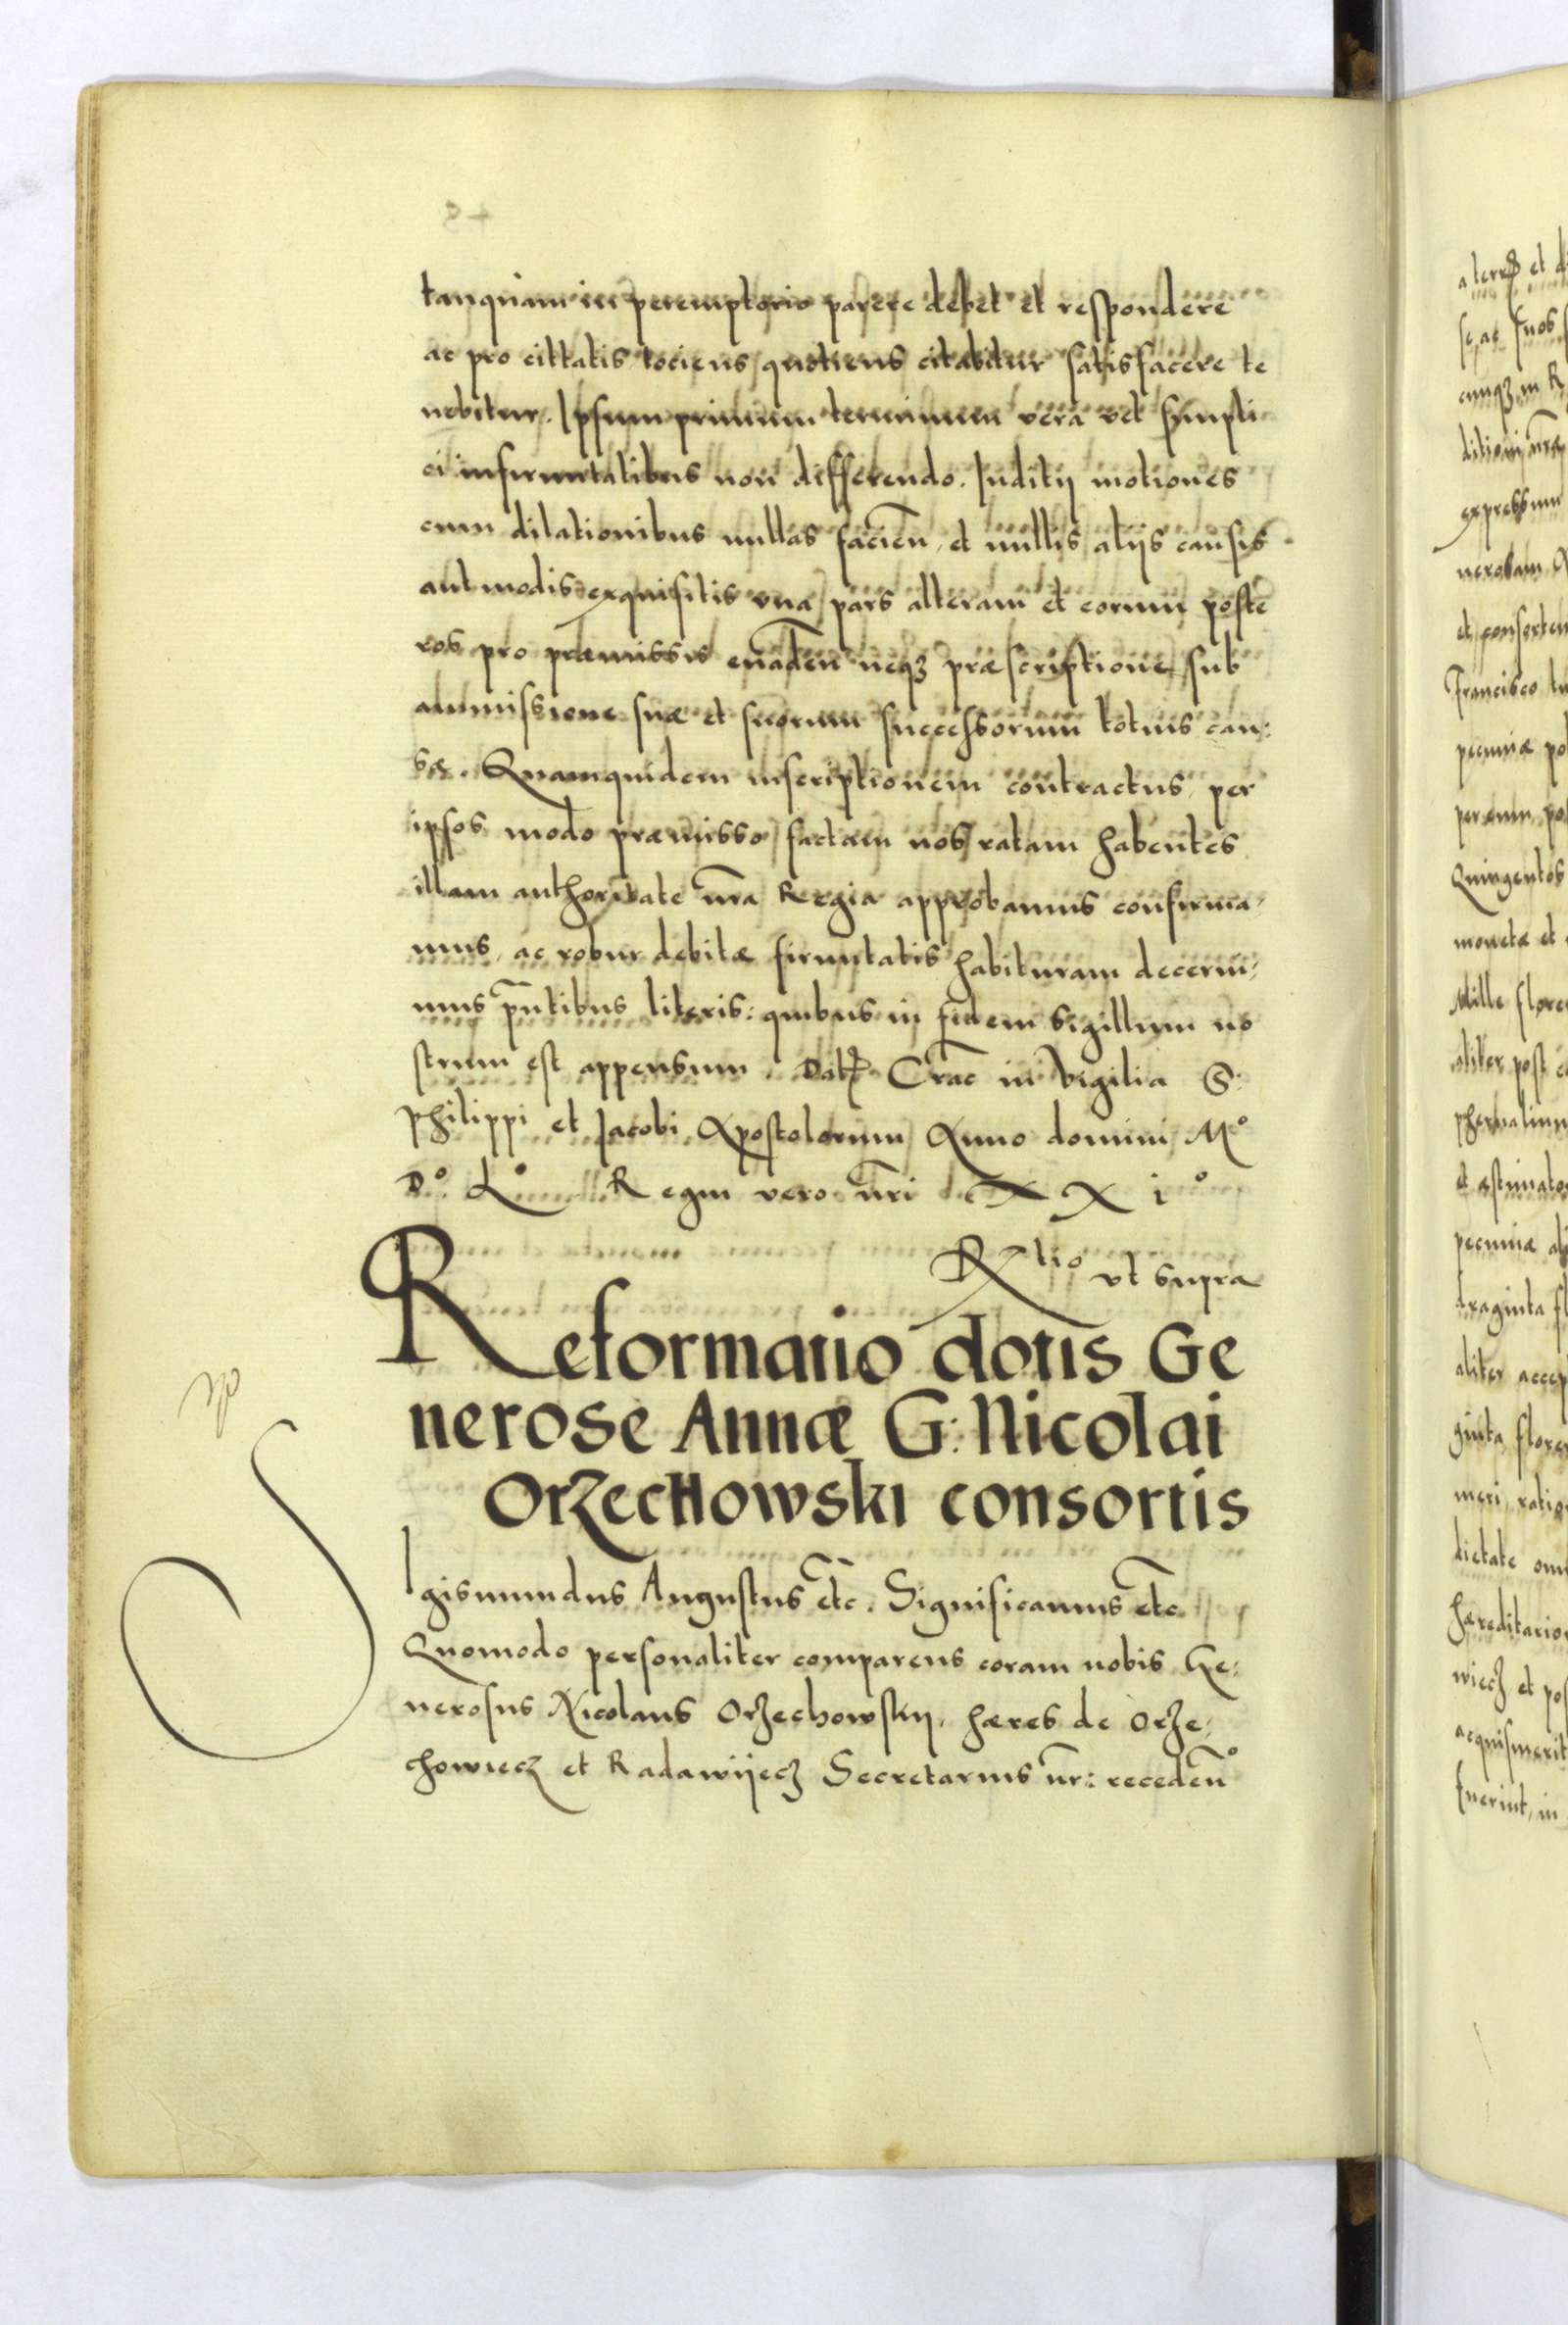 tanquam in peremptorio parere debet et respondere
ac pro cittatis tociens quotiens citabitur satisfacere te
nebitur. Ipsum primum terminum vera vel simpli
ci infirmitatibus non differendo. Inditij motiones
cum dilationibus nullas facien̄, et nullis alijs causis
aut modis exquisitis vna pars alteram et eorum poste
ros pro præmissis euaden̄ neqȝ præscriptione sub
ammissione suæ et suorum successorum totius cau:
sæ. Quamquidem inscriptionem contractus, per
ipsos modo præmisso factam nos ratam habentes
illam authoritate nr̄a Regia approbamus confirma,
mus, ac robur debitæ firmitatis habituram decerni,
mus pn̄tibus literis: quibus in fidem Sigillum no
strum est appensum. Dat Crac̄ in vigilia S:
Philippi et Jacobi Apostolorum Anno domini M°
D° L° Regni vero nr̄i XXi°
Rtio vt supra
Reformatio dotis Ge
nerose Annæ G: Nicolai
Orzechowski consortis
SIgismundus Augustus etc̄. Significamus etc̄
Quomodo personaliter comparens coram nobis Ge:
nerosus Nicolaus Orzechowskij, hæres de Orze,
chowiecz et Radawijecz Secretarius nr̄: receden̄°
a terrȝ et
se, ac suos
cunqȝ in R
ditioni nr̄æ
expressum
et consorten
Francisco
pecuniæ po
per eum po
Quingentos
monetæ et
Mille flore
aliter post
et æstimato
pecuniæ
draginta
aliter accep
ginta flore
meri, ratio
dictate
hæreditario
wiecz et pos
acquisuerit
fuerint, in